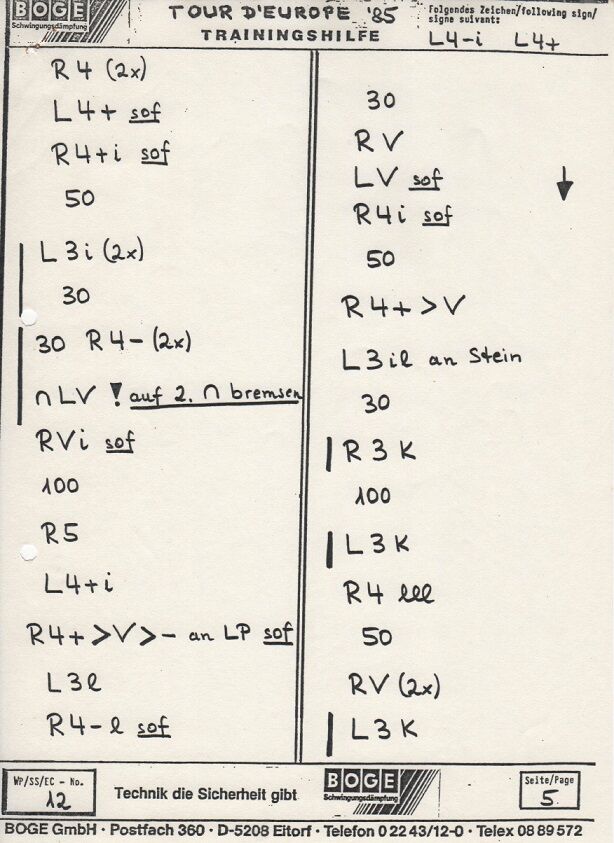 BOGE
Schwingungsdämpfung
TOUR D'EUROPE '85
TRAININGSHILFE
Folgendes Zeichen/following sign/
signe suivant:
L4-i L4+
R4 (2x)
L4+ sof
R4+i sof
50
L3i (2x)
30
30 R4- (2x)
∩ LV ! auf 2. ∩ bremsen
RVi sof
100
R5
L4+i
R4+ >V>- an LP sof
L3l
R4-l sof
30
RV
LV sof
R4i sof
50
R4+ >V
L3il an Stein
30
R3K
100
L3K
R4 lll
50
RV (2x)
L3K
WP/SS/EC - No.
12
Technik die Sicherheit gibt
BOGE
Schwingungsdämpfung
Seite/Page
5
BOGE GmbH · Postfach 360 · D-5208 Eitorf · Telefon 0 22 43/12-0 · Telex 08 89 572